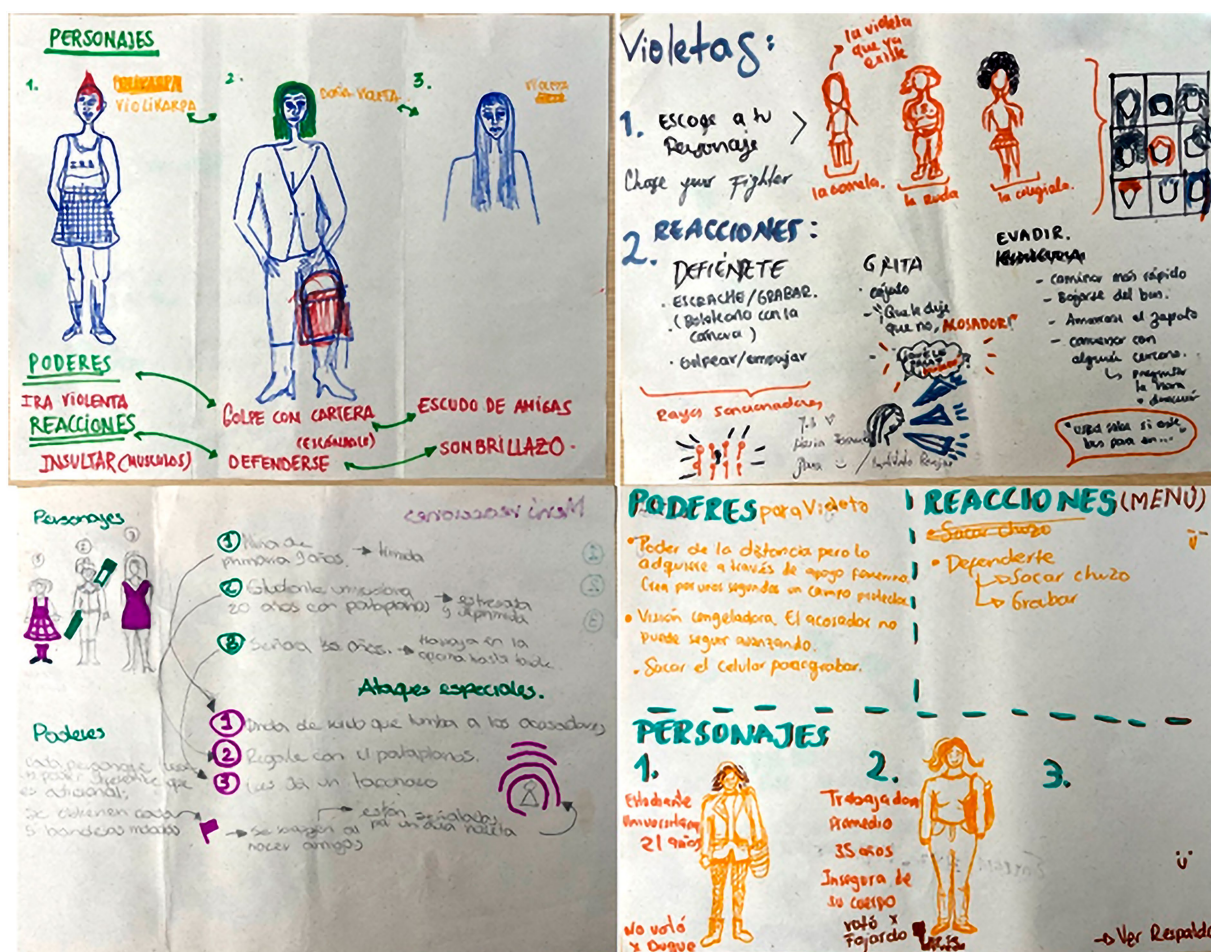 PERSONAJES
1.
VIOLIKARPA
2.
DOÑA VIOLETA
3.
VIOLETA
PODERES
IRA VIOLENTA
GOLPE CON CARTERA
(ESCÁNDALO)
ESCUDO DE AMIGAS
REACCIONES
INSULTAR (MUSCULOS)
DEFENDERSE
SOMBRILLAZO.
Violetas:
la violeta
que ya
existe
1. Escoge a tu
Personaje
Chose your Fighter
la gomela.
la Ruda
la colegiala.
2. REACCIONES:
DEFIÉNETE
· ESCRACHE/GRABAR.
(Boletearlo con la
cámara)
· Golpear/empujar
Rayos sancionadores
GRITA
"¡Que le dije
que no, ACOSADOR!"
EVADIR.
- caminar más rápido
- Bajarse del bus.
- Amarrarse el zapato
- conversar con
alguien cercano.
preguntar
la hora
"Usted sabe si este
bus para en..."
Personajes
Menú reacciones
1 Niña de
primaria 9 años. → tímida
2 Estudiante universitaria
20 años con portaplanos → estresada
y deprimida
3 Señora 30 años. → trabaja en la
oficina hasta tarde.
Ataques especiales.
1 Onda de ruido que tumba a los acosadores
2 Pegale con el portaplanos.
3 Les da un taconazo
Poderes
Cada personaje
es adicional,
Se obtienen cada
nacer amigas
PODERES para Violeta
· Poder de la distancia pero lo
adquiere a través de apoyo femenino.
Crea por unos segundos un campo protector.
· Visión congeladora. El acosador no
puede seguir avanzando.
· Sacar el celular para grabar.
REACCIONES (MENÚ)
Sacar chuzo
· Defenderte
Sacar chuzo
Grabar
PERSONAJES
1.
Estudiante
Universitaria
21 años
No votó
x Duque
2.
Trabajadora
Promedio
35 años
Insegura de
su cuerpo
votó x
Fajardo
3.
→ Ver Respaldo